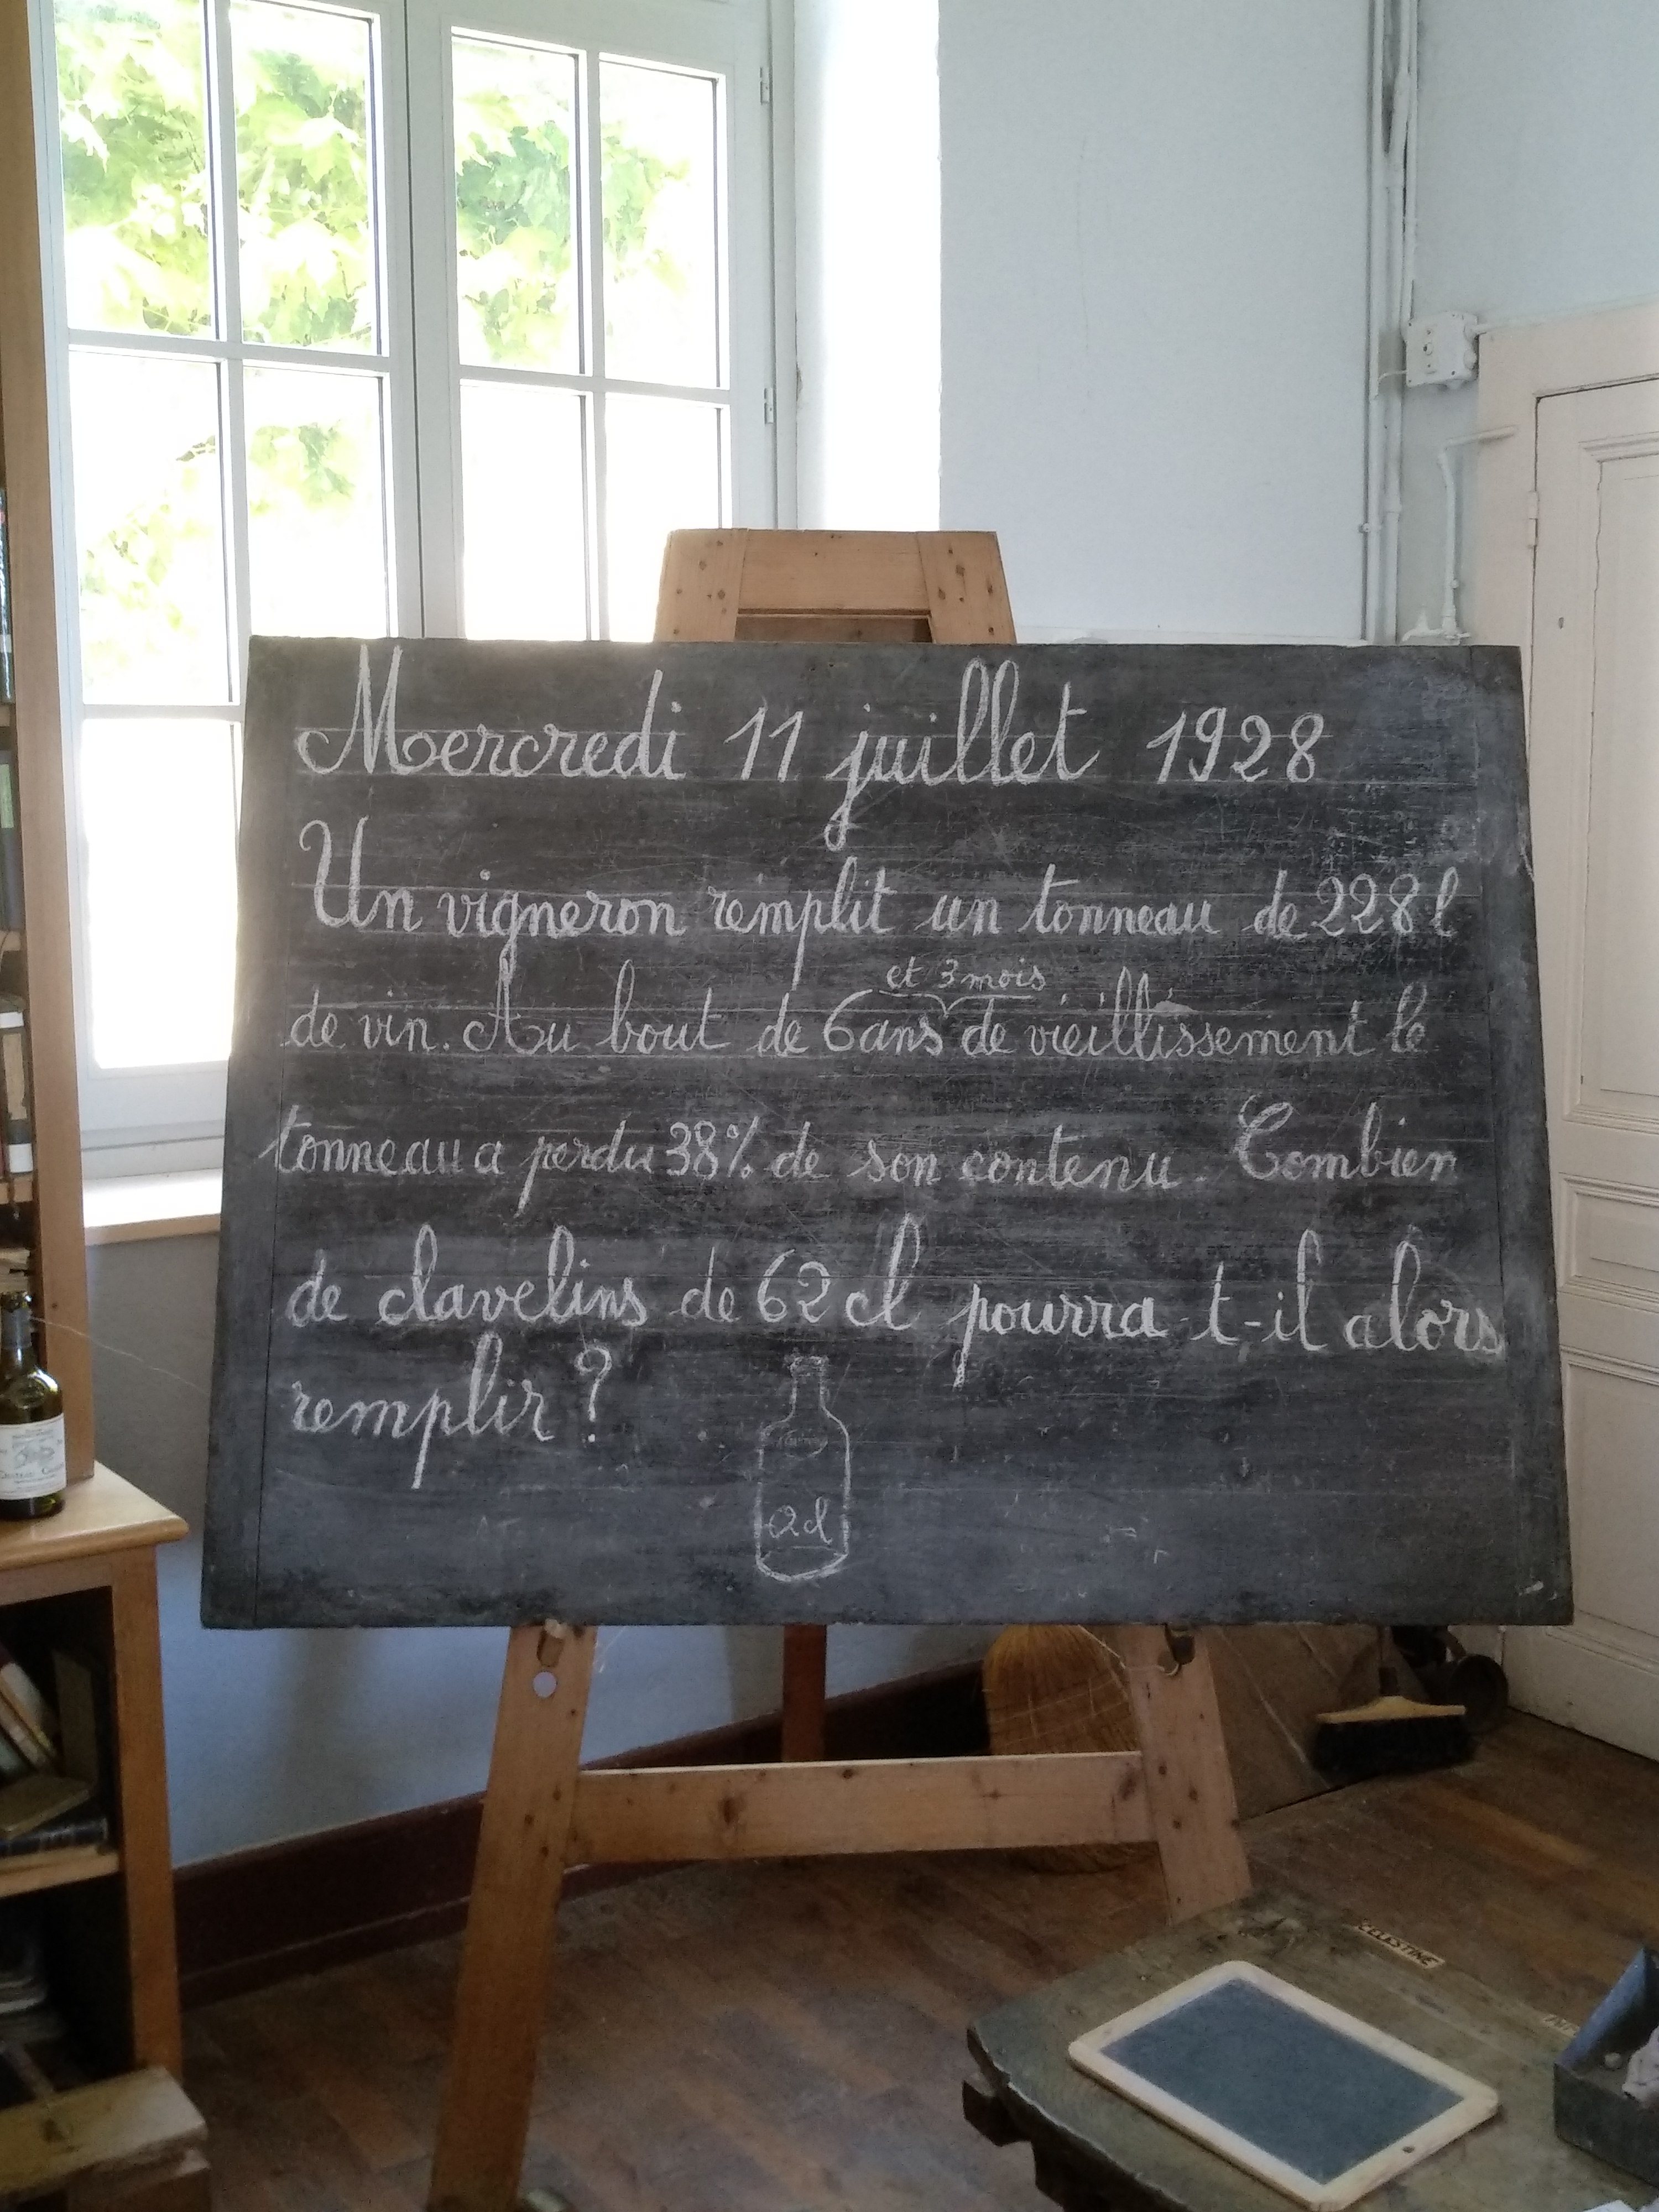 Mercredi 11 juillet 1928
Un vigneron remplit un tonneau de 228 l
et 3 mois
de vin. Au bout de 6 ans de vieillissement le
tonneau a perdu 38% de son contenu. Combien
de clavelins de 62 cl pourra-t-il alors
remplir ?
CELESTINE